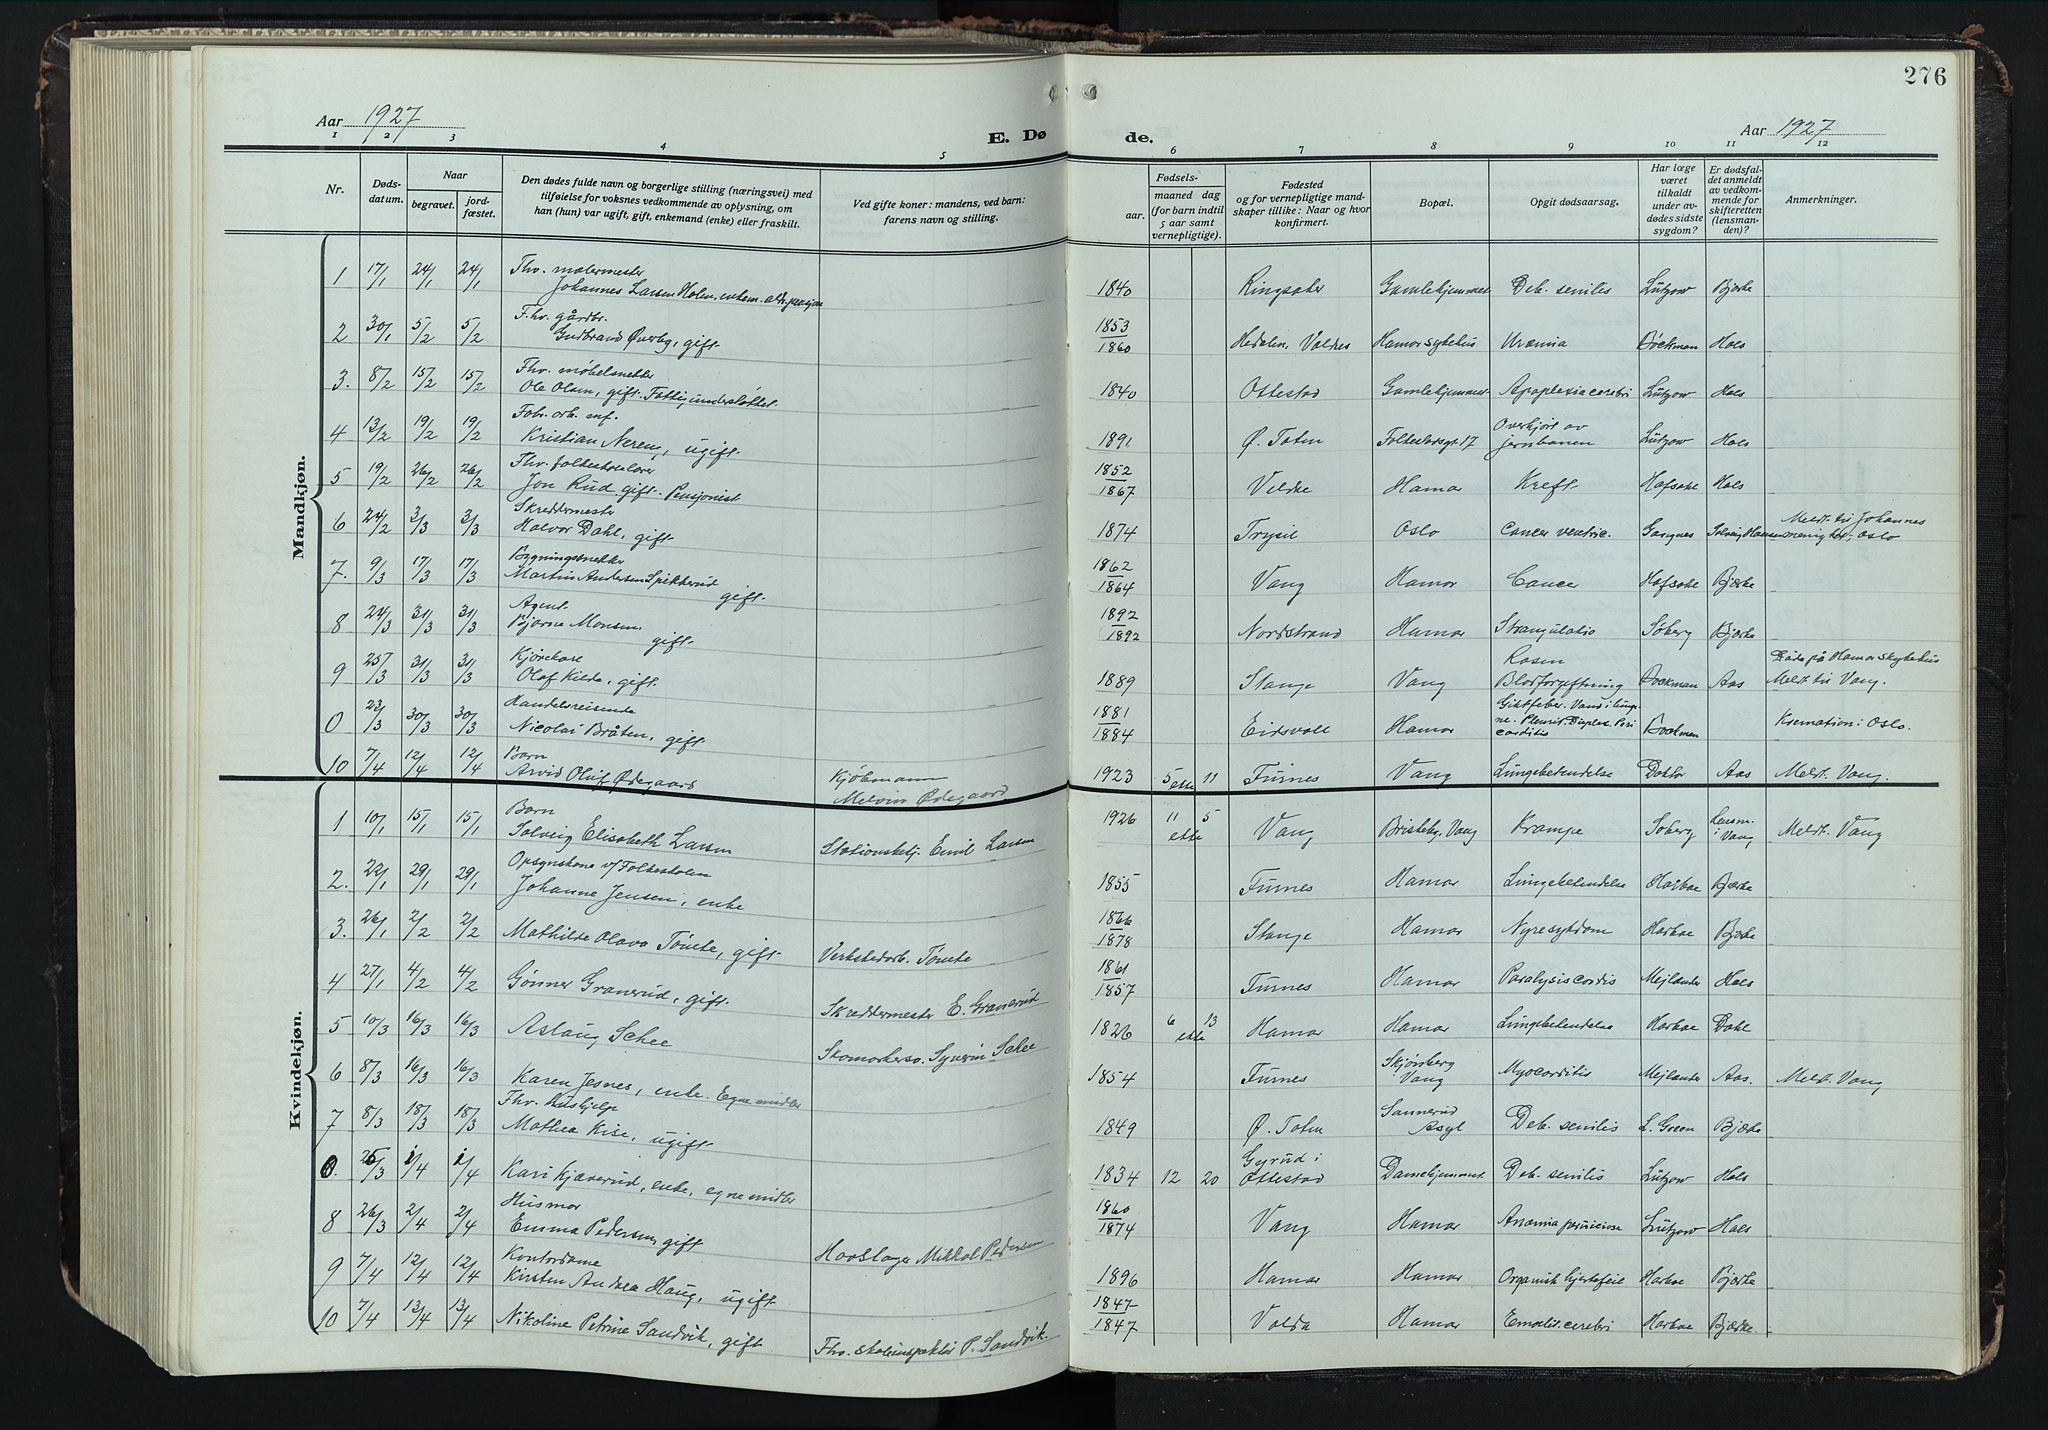 276
Aar 1927
E. Dø
de.
Aar 1927
1 2 3 4 5
6 7 8 9 10 11 12
Nr.
Døds-
datum.
Naar
begravet.
jord-
fæstet.
Den dødes fulde navn og borgerlige stilling (næringsvei) med
tilføielse for voksnes vedkommende av oplysning, om
han (hun) var ugift, gift, enkemand (enke) eller fraskilt.
Ved gifte koner: mandens, ved barn:
farens navn og stilling.
Fødsels-
aar.
maaned dag
(for barn indtil
5 aar samt
vernepligtige).
Fødested
og for vernepligtige mand-
skaper tillike: Naar og hvor
konfirmert.
Bopæl.
Opgit dødsaarsag.
Har læge
været
tilkaldt
under av-
dødes sidste
sygdom?
Er dødsfal-
det anmeldt
av vedkom-
mende for
skifteretten
(lensman-
den)?
Anmerkninger.
Mandkjøn.
Fhv. malermester
1 17/1 24/1 24/1 Johannes Larsen Holm, enkem. ald. pensjon 1840 Ringsaker Gamlehjemmet Deb. senilis Lützow Bjerke
F.hv. gårdbr.
2 30/1 5/2 5/2 Gudbrand Øverby, gift. 1853/1860 Hedalen, Valdres Hamar sykehus Uræmia Böckman Hals
Fhv. møbelsnekker
3. 8/2 15/2 15/2 Ole Olsen, gift. Fattigunderstøttet 1840 Ottestad Gamlehjemmet Apoplexia cerebri Lützow Hals
Fabr. arb. mf.
4 13/2 19/2 19/2 Kristian Nereng, ugift. 1891 Ø. Toten Folkestadsgt 17 Overkjørt av jernbanen Lützow Hals
Fhv. folkeskolelærer
5 19/2 26/2 26/2 Jon Rud, gift. Pensjonist 1852/1867 Veldre Hamar Kreft. Hafsake Hals
Skreddermester
6 24/2 3/3 3/3 Halvor Dahl, gift. 1874 Trysil Oslo Cancer ventric. Solveig Hansen Meldt til Johannes menighet, Oslo
Bygningssnekker
7. 9/3 17/3 17/3 Martin Andersen Spikkerud gift. 1862/1864 Vang Hamar Cancer Hafsake Bjerke
Agent.
8 24/3 31/3 31/3 Bjarne Monsen. gift. 1892/1892 Nordstrand Hamar Strangulatio Søberg Bjerke
Kjørekar
9 25/3 31/3 31/3 Olaf Kilde, gift. 1889 Stange Vang Rosen Blodforgiftning Böckman Aas Døde på Hamar sykehus Meldt til Vang.
Handelsreisende
0 23/3 30/3 30/3 Nicolai Bråten, gift. 1881/1884 Eidsvoll Hamar Giktfeber. Vand i lunge- ne. Pleurit. Duplex. Peri carditis Böckman Kremation: Oslo.
Barn
10 7/4 12/4 12/4 Arvid Oluf Ødegaard Kjøbmann Melvin Ødegaard 1923 5 ekte 11 Furnes Vang Lungebetendelse Doktor Aas Meldt. Vang.
Kvindekjøn.
Barn
1 10/1 15/1 15/1 Solveig Elisabeth Larsen Stationsbetj. Emil Larsen 1926 11 ekte 5 Vang Bristeby, Vang Krampe Søberg Lensm. i Vang Meldt. Vang
Opsynskone v/ Folkeskolen
2. 22/1 29/1 29/1 Johanne Jensen, enke 1855 Furnes Hamar Lungebetendelse Harboe Bjerke
3. 26/1 2/2 2/2 Mathilde Olava Tønete, gift. Verkstedarb. Tønete 1866/1878 Stange Hamar Nyresykdom Harboe Bjerke
4 27/1 4/2 4/2 Gønner Granerud, gift. Skreddermester E. Granerud 1861/1857 Furnes Hamar Paralysis cordis Mejlænder Hals
5 10/3 16/3 16/3 Aslaug Schee Skomakersv. Syverin Schee 1826 6 ekte 13 Hamar Hamar Lungebetendelse Harboe Dahl
6 8/3 16/3 16/3 Karen Jesnes, enke. Egne midler 1854 Furnes Skjønsberg Vang Myocarditis Mejlænder Aas. Meldt. Vang
Fhv. Hushjelp
7 8/3 18/3 18/3 Mathea Kise, ugift 1849 Ø. Toten Sannerud Asyl Deb. senilis L. Green Bjerke
0. 25/3 1/4 1/4 Kari Kjæverud, enke, egne midler 1834 12 20 Gyrud i Ottestad Damehjemmet Deb. senilis Lützow Hals
Husmor
8 26/3 2/4 2/4 Emma Pedersen, gift Hovslager Mikkal Pedersen 1860/1874 Vang Hamar Anæmia perniciose Lützow Hals
Kontordame
9 7/4 12/4 12/4 Kirsten Andrea Haug, ugift. 1896 Hamar Hamar Organisk hjertefeil Harboe Bjerke
10 7/4 13/4 13/4 Nikoline Petrine Sandvik, gift Fhv. skoleinspektør P. Sandvik. 1847/1847 Volda Hamar Harboe Bjerke